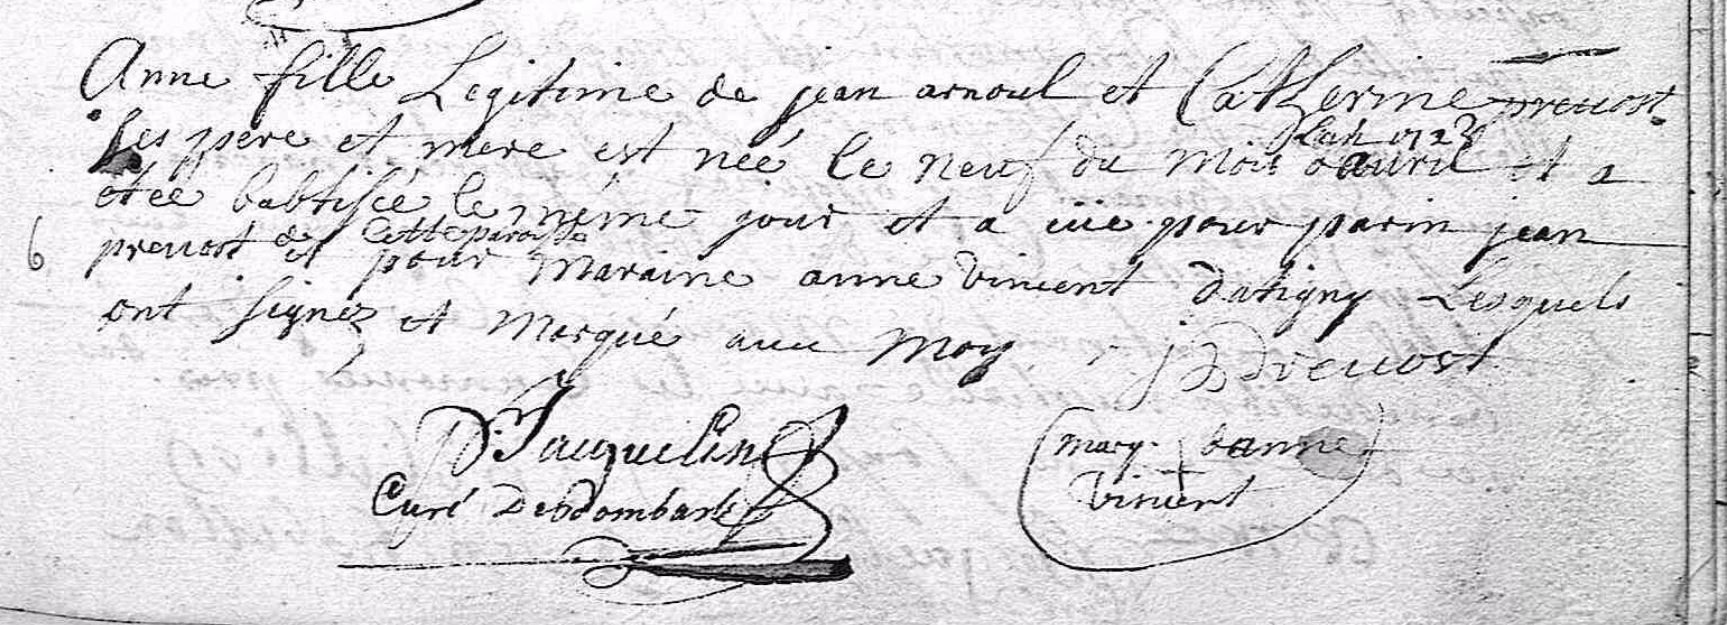 Anne fille Legitime de jean arnoul et Catherine preuost
Ses pere et mere est neé le neuf du mois d'auril Lan 1723 et a
eteé babtisée le méme jour et a eüe pour parin jean
6 preuost de Cette paroisse et pour maraine anne Vincent Datigny Lesquels
ont signez et Marqué auec Moy j preuost
D. Jacquelin marq. danne
Curé Vincent